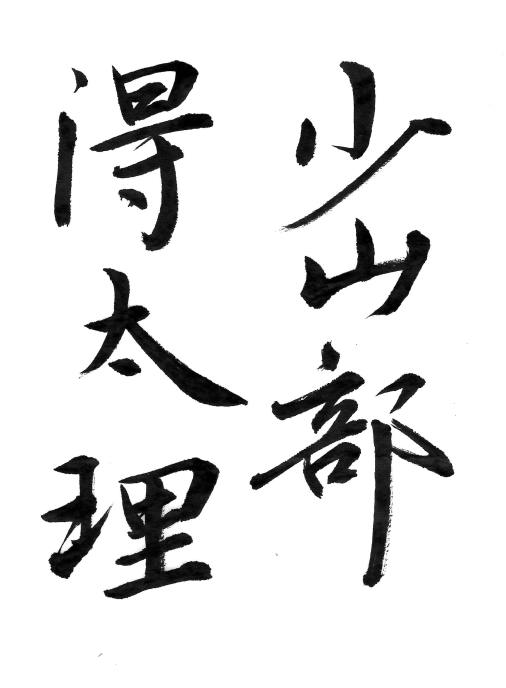 少山部
得太理